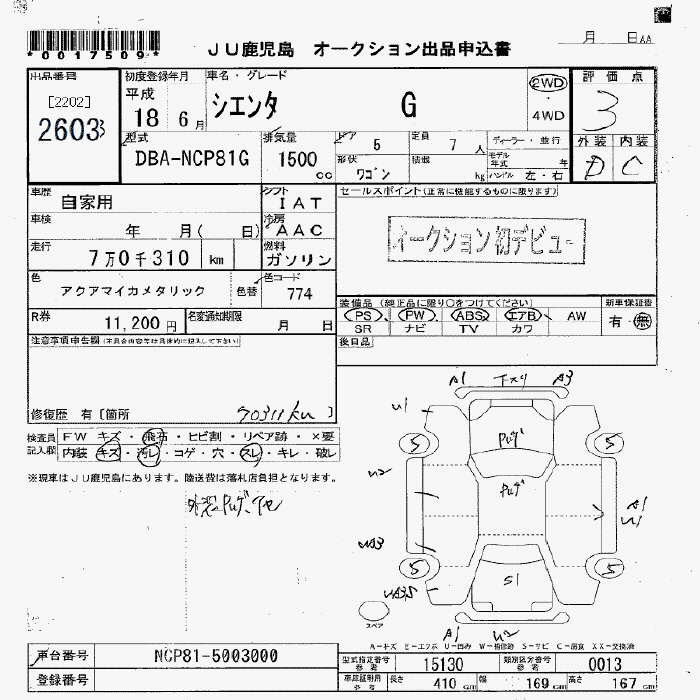 *0017509*
JU鹿児島 オークション出品申込書
月 日AA
出品番号
[2202]
2603
初度登録年月
平成
18 6月
車名・グレード
シエンタ G
2WD
・
4WD
評価点
3
外装 内装
D C
型式
DBA-NCP81G
排気量
1500
cc
ドア 5
定員 7人
形状
ワゴン
積載
kg
ディーラー・並行
モデル
年式 年
ハンドル 左・右
車歴
自家用
シフト
IAT
セールスポイント(正常に機能するものに限ります)
車検
年 月( 日)
冷房
AAC
オークション初デビュー
走行
7万0千310 km
燃料
ガソリン
色
アクアマイカメタリック
色替
色コード
774
装備品(純正品に限り○をつけてください)
新車保証書
PS PW ABS エアB AW
SR ナビ TV カワ
有・無
R券
11,200円
名変通知期限
月 日
後日品
注意事項申告欄(不具合内容等は具体的に記入して下さい)
修復歴 有〔箇所 70311km 〕
検査員
記入欄
FW キズ・飛石・ヒビ割・リペア跡・×要
内装 キズ・汚レ・コゲ・穴・スレ・キレ・破レ
※現車はJU鹿児島にあります。陸送費は落札店負担となります。
A1 下スリ A3
U1
5 5
U2
A1
U1
5 5
S1
スペア
A1 U2
A-キズ E-エクボ U-凹み W-補修跡 S-サビ C-腐食 XX-交換済
車台番号
NCP81-5003000
登録番号
型式指定番号
参考
15130
類別区分番号
参考
0013
車庫証明用
参考
長さ 410cm
幅 169cm
高さ 167cm